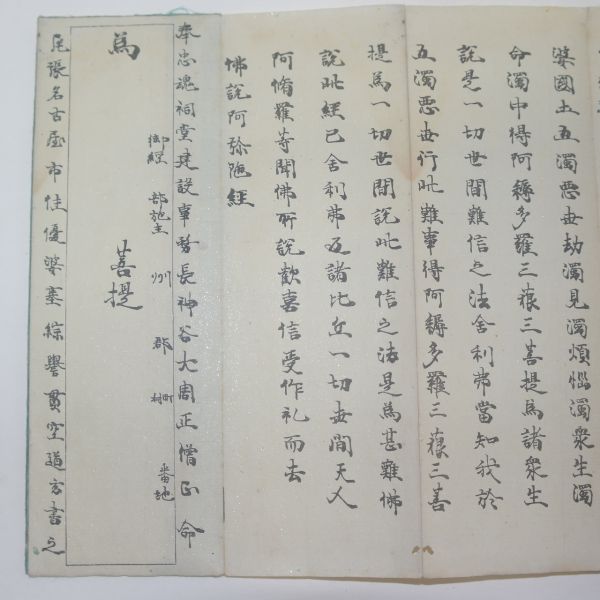 婆國土五濁悪世劫濁見濁煩惱濁衆生濁
命濁中得阿耨多羅三藐三菩提為諸衆生
説是一切世間難信之法舎利弗當知我於
五濁悪世行此難事得阿耨多羅三藐三菩
提為一切世間説此難信之法是為甚難佛
説此經已舎利弗及諸比丘一切世間天人
阿脩羅等聞佛所説歓喜信受作礼而去
佛説阿弥陁經
奉忠魂祠堂建設事務長神谷大周正僧正命
御經 部施主 州 郡 町村 番地
為 菩提
尾張名古屋市住優婆塞綜譽貫空道方書之